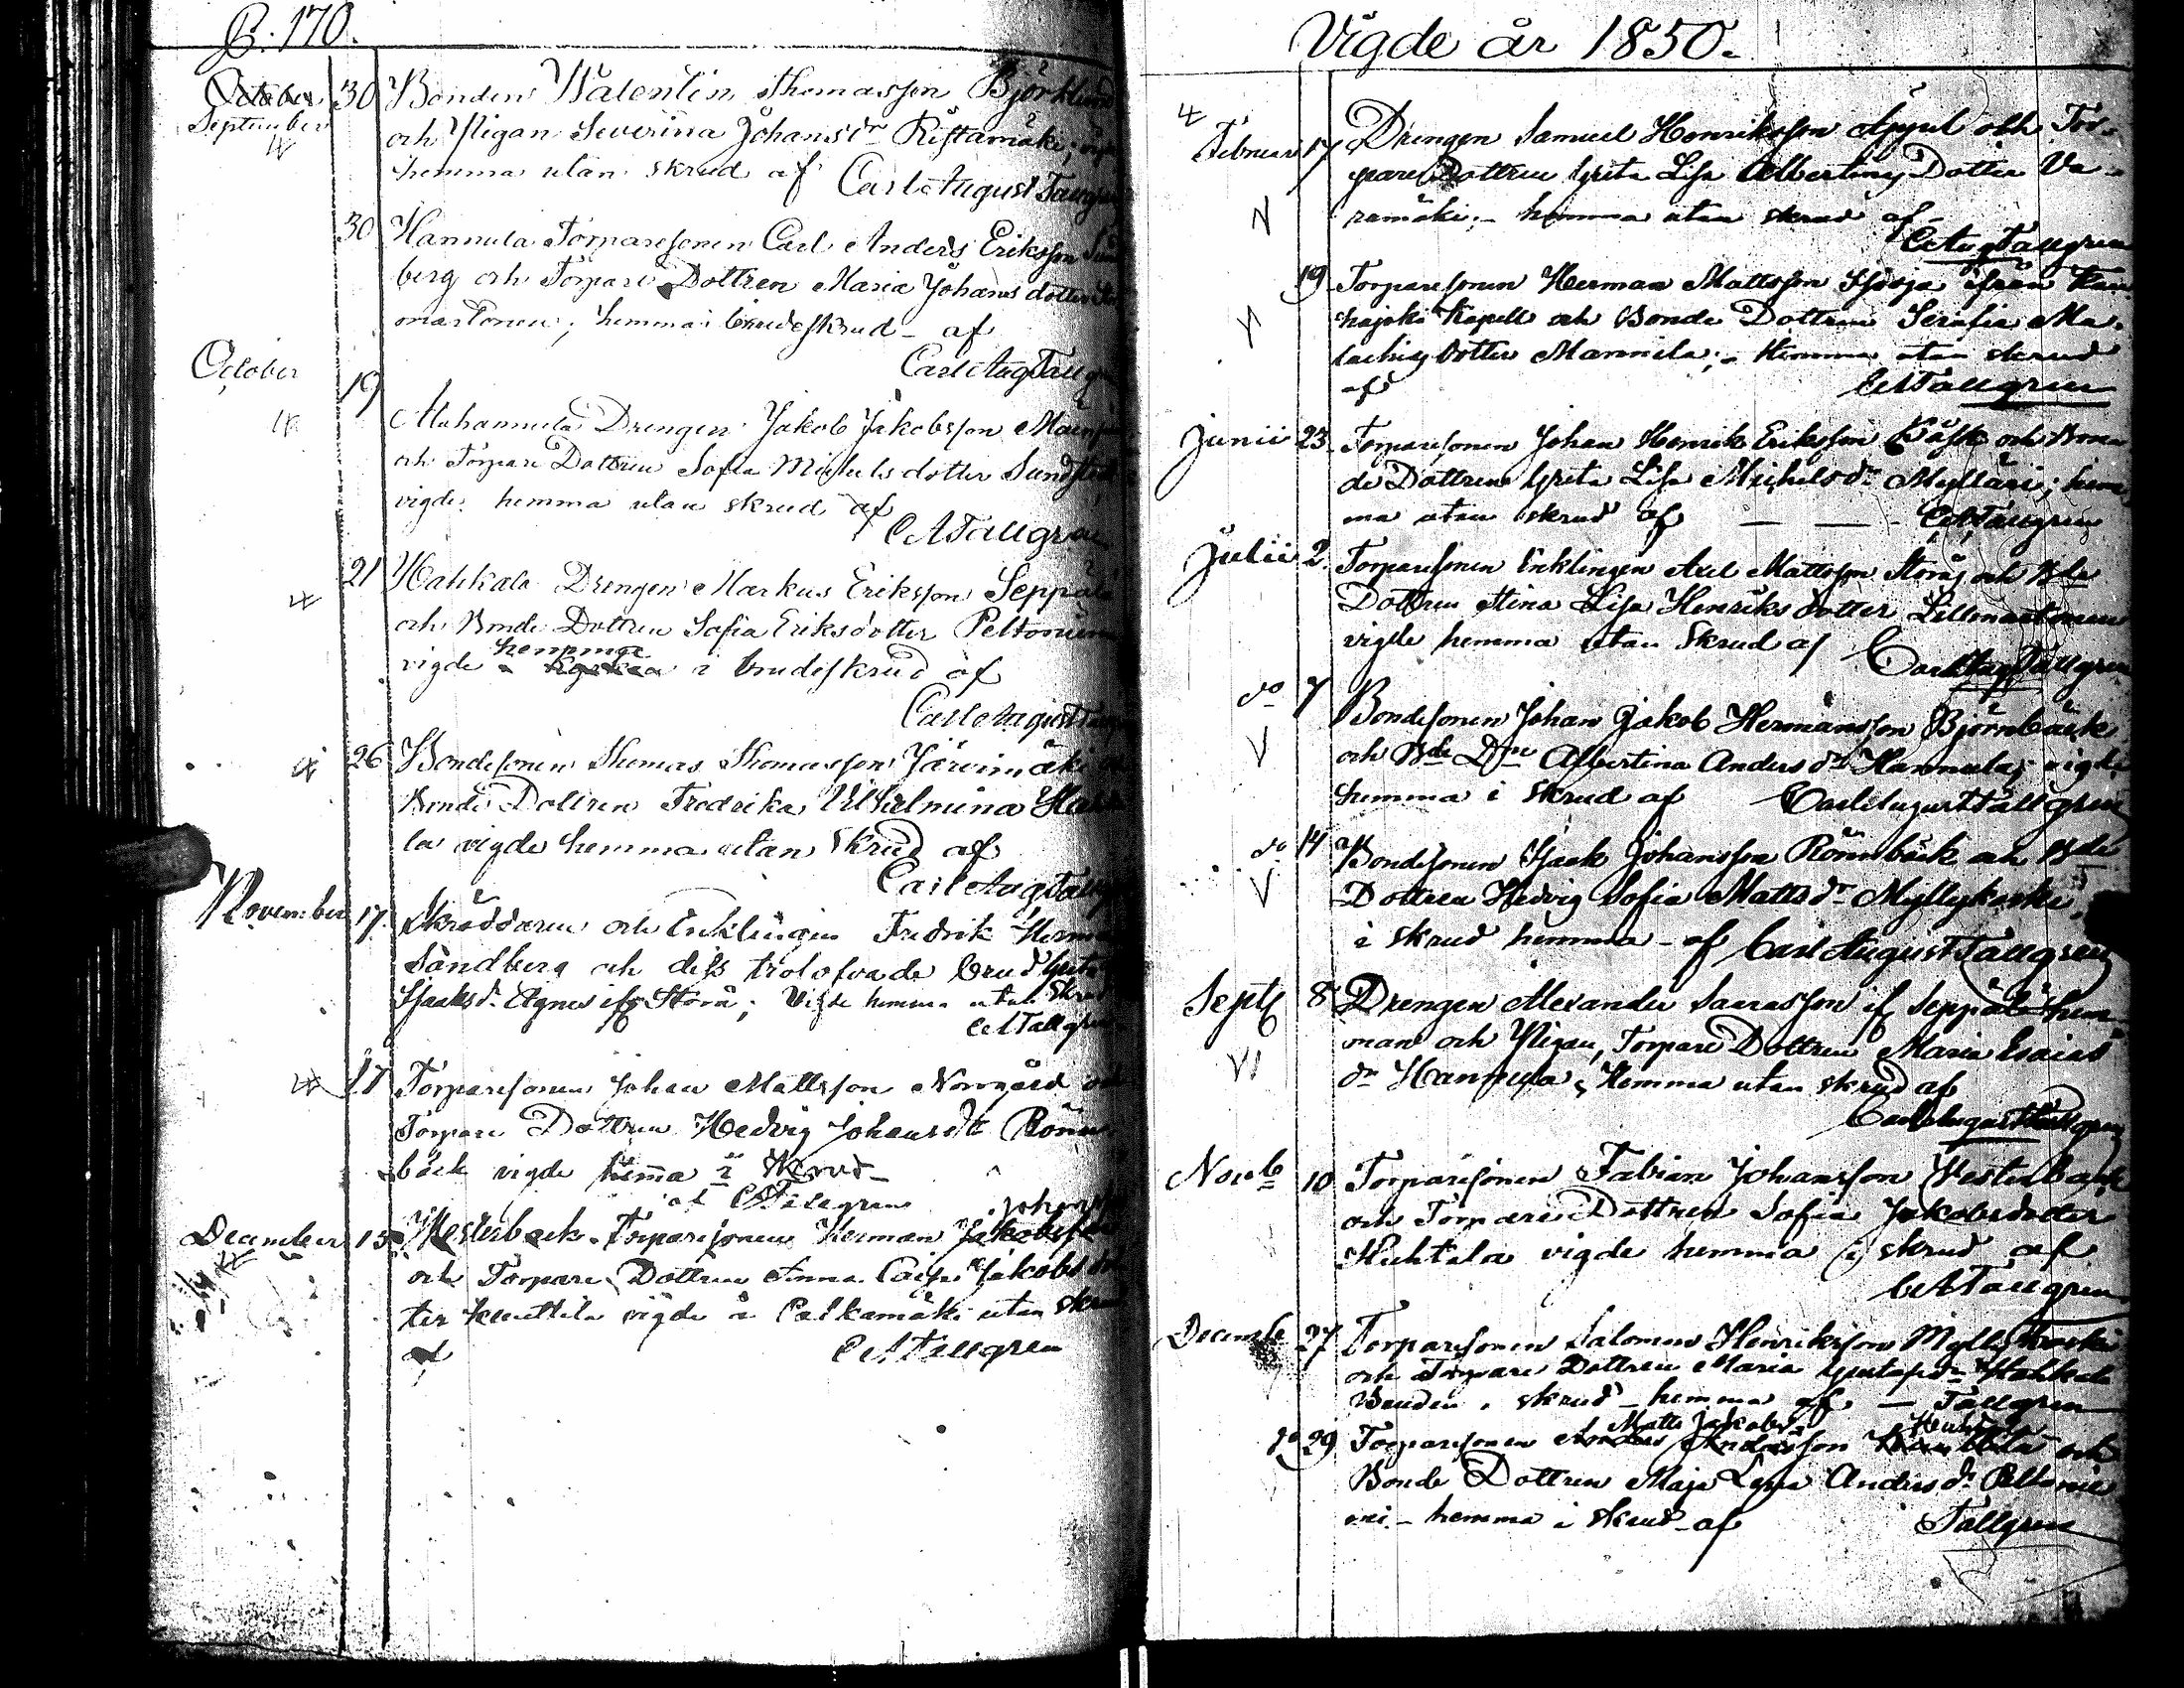 P. 170.
October 30 Bonden Walentin Thomasson Björklund
September och Pigan Severina Johansdr Ristamäki; vigde
hemma utan skrud af Carl August Tallgren
30 Hannula Torparesonen Carl Anders Eriksson
berg och Torpare Dottren Maria Johans dotter
mastonen; hemma i brudeskrud - af
October Carl Aug Tallgren
19 Alahannula Drengen Jakob Jakobsson
och Torpare Dottren Sofia Michels dotter
vigde hemma utan skrud af
CATallgren
21 Hahkala Drengen Markus Eriksson Seppälä
och Bonde Dottren Sofia Eriksdotter Peltoniemi
hemma
vigde i brudeskrud af
Carl August Tallgren
26 Bondesonen Thomas Thomasson Järvimäki
Bonde Dottren Fredrika Vilhelmina
la vigde hemma utan skrud af
Carl Aug Tallgren
November 17. Skräddaren och Enklingen Fredrik Herm
Sandberg och dess trolofvade brud Greta
Isaksdr Agnes ifr Storå; Vigde hemma utan skrud
CATallgren
17 Torparesonen Johan Mattsson Norrgård och
Torpare Dottren Hedvig Johansdtr Rönn
bäck vigde hemma i skrud
af CATallgren
Johansson
December 15 Westerback Torparesonen Herman Jakobsson
och Torpare Dottren Anna Caisa Jakobs dot
ter Knuttila vigde å utan skrud
af CATallgren
Vigde år 1850.
Februari 17 Drengen Samuel Henriksson och Tor-
pare Dottren Greta Lisa Albertins Dotter Va-
ramäki; - hemma utan skrud af -
CAugTallgren
19 Torparesonen Herman Mattsson ifrån Kau
hajoki Kapell och Bonde Dottren Serafia Ma-
lachias dotter Mannila; - Hemma utan skrud
af CATallgren
Junii 23 Torparesonen Johan Henrik Eriksson och Bon
de Dottren Greta Lisa Michelsdr Mylläri; hem
ma utan skrud af — — CATallgren
Julii 2. Torparesonen Enklingen Axel Mattsson Storås och Bde
Dottren Stina Lisa Henriks dotter Lillmastonen
vigde hemma utan Skrud af Carl Aug Tallgren
do 7 Bondesonen Johan Jakob Hermansson Björnbäck
och Bde Dren Albertina Anders dr Hannula; vigde
hemma i skrud af Carl August Tallgren
do 14 Bondesonen Isaak Johansson Rönnbäck och Bde
Dottren Hedvig Sofia Mattsdr Myllykoski,
i skrud hemma - af Carl August Tallgren
Sept 8 Drengen Alexander Saarasson if Seppälä hem
man och Pigan, Torpare Dottren Maria Esaias
dr Hannula; Hemma utan skrud af
Carl August Tallgren
Novb 10 Torparesonen Fabian Johansson Westerback
och Torpare Dottren Sofia Jakobsdotter
Huhtala vigde hemma i skrud af
CATallgren
Decemb 27 Torparesonen Salomon Henriksson Myllykoski
och Torpare Dottren Maria Gustafsdr Hahkala
Bruden i skrud - hemma af — Tallgren
Matts Jakobs
do 29 Torparesonen Anders Andersson och
Bonde Dottren Maja Lisa Andersdr Peltonie
mi - hemma i skrud - af Tallgren